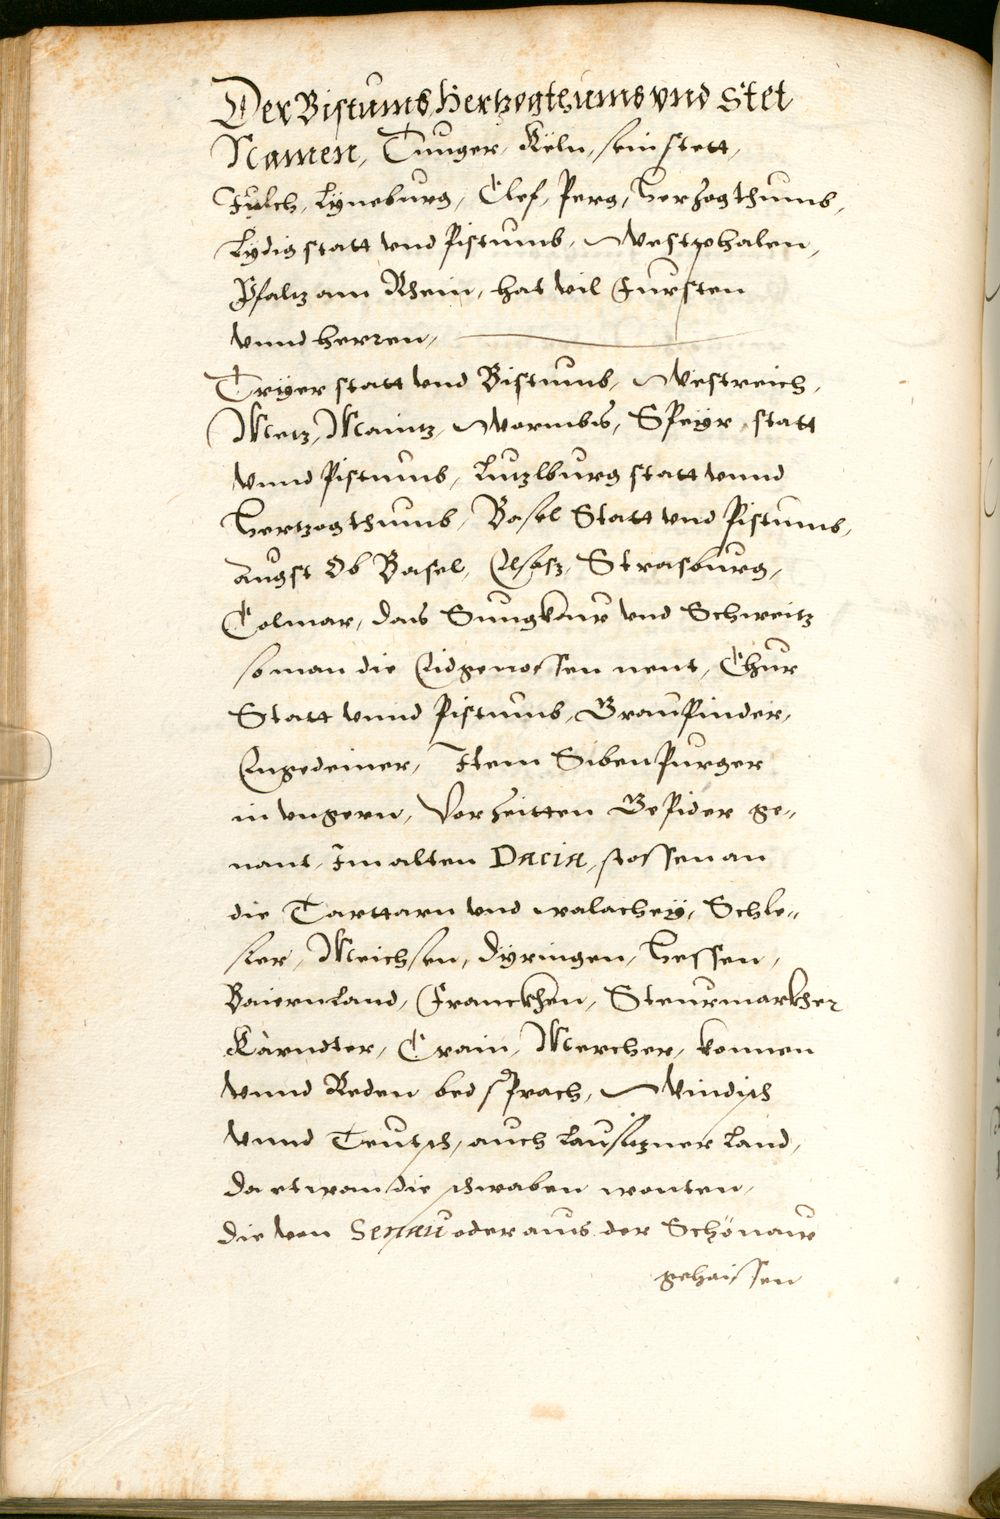 Der Bistumb, Hertzogthumb vnd Stet
Namen, Tunger, Köln, sein stett,
Jülch, Lyneburg, Clef, Perg, Herzogthumb,
Lydig statt vnd Pistumb, Westphalen,
Pfaltz am Rhein, hat vil Fursten
vnnd herren,
Tryer statt vnd Bistumb, Westreich,
Metz, Maintz, Wormbs, Speÿr, statt
vnnd Pistumb, Lutzlburg statt vnnd
Hertzogthumb, Basel Statt vnd Pistumb,
Augst Ob Basel, Elsasz, Strasburg,
Colmar, das Sungkaw vnd Schweitz
so man die Eidgenossen nent, Chur
Statt vnnd Pistumb, Graupinder,
Engedeiner, Item Sibenpurger
in vngern, Vorzeitten Gepider ge-
nant, Im alten Dacia, stossen an
die Tarttarn vnd walacheÿ, Schle-
sier, Meichsen, Dyringen, Hessen,
Baiernland, Franckhen, Steurmarkher
Kärndter, Crain, Mercher, konnen
vnnd Reden bed sprach, Windisch
vnnd Teutsch, auch Lausizner Land,
da etwan die schwaben wonten,
die von Senau oder aus der Schönaw
gehaissen